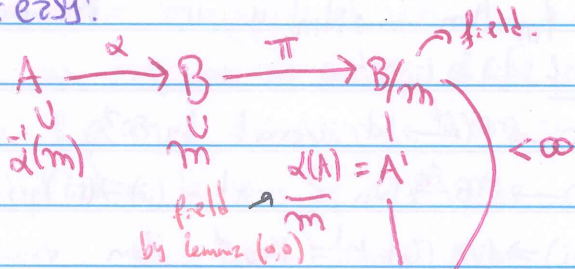 easy:
A —α→ B —π→ B/m → field.
∪ ∪ |
α⁻¹(m) m α(A)/m = A' < ∞
field →
by lemma (0,0)